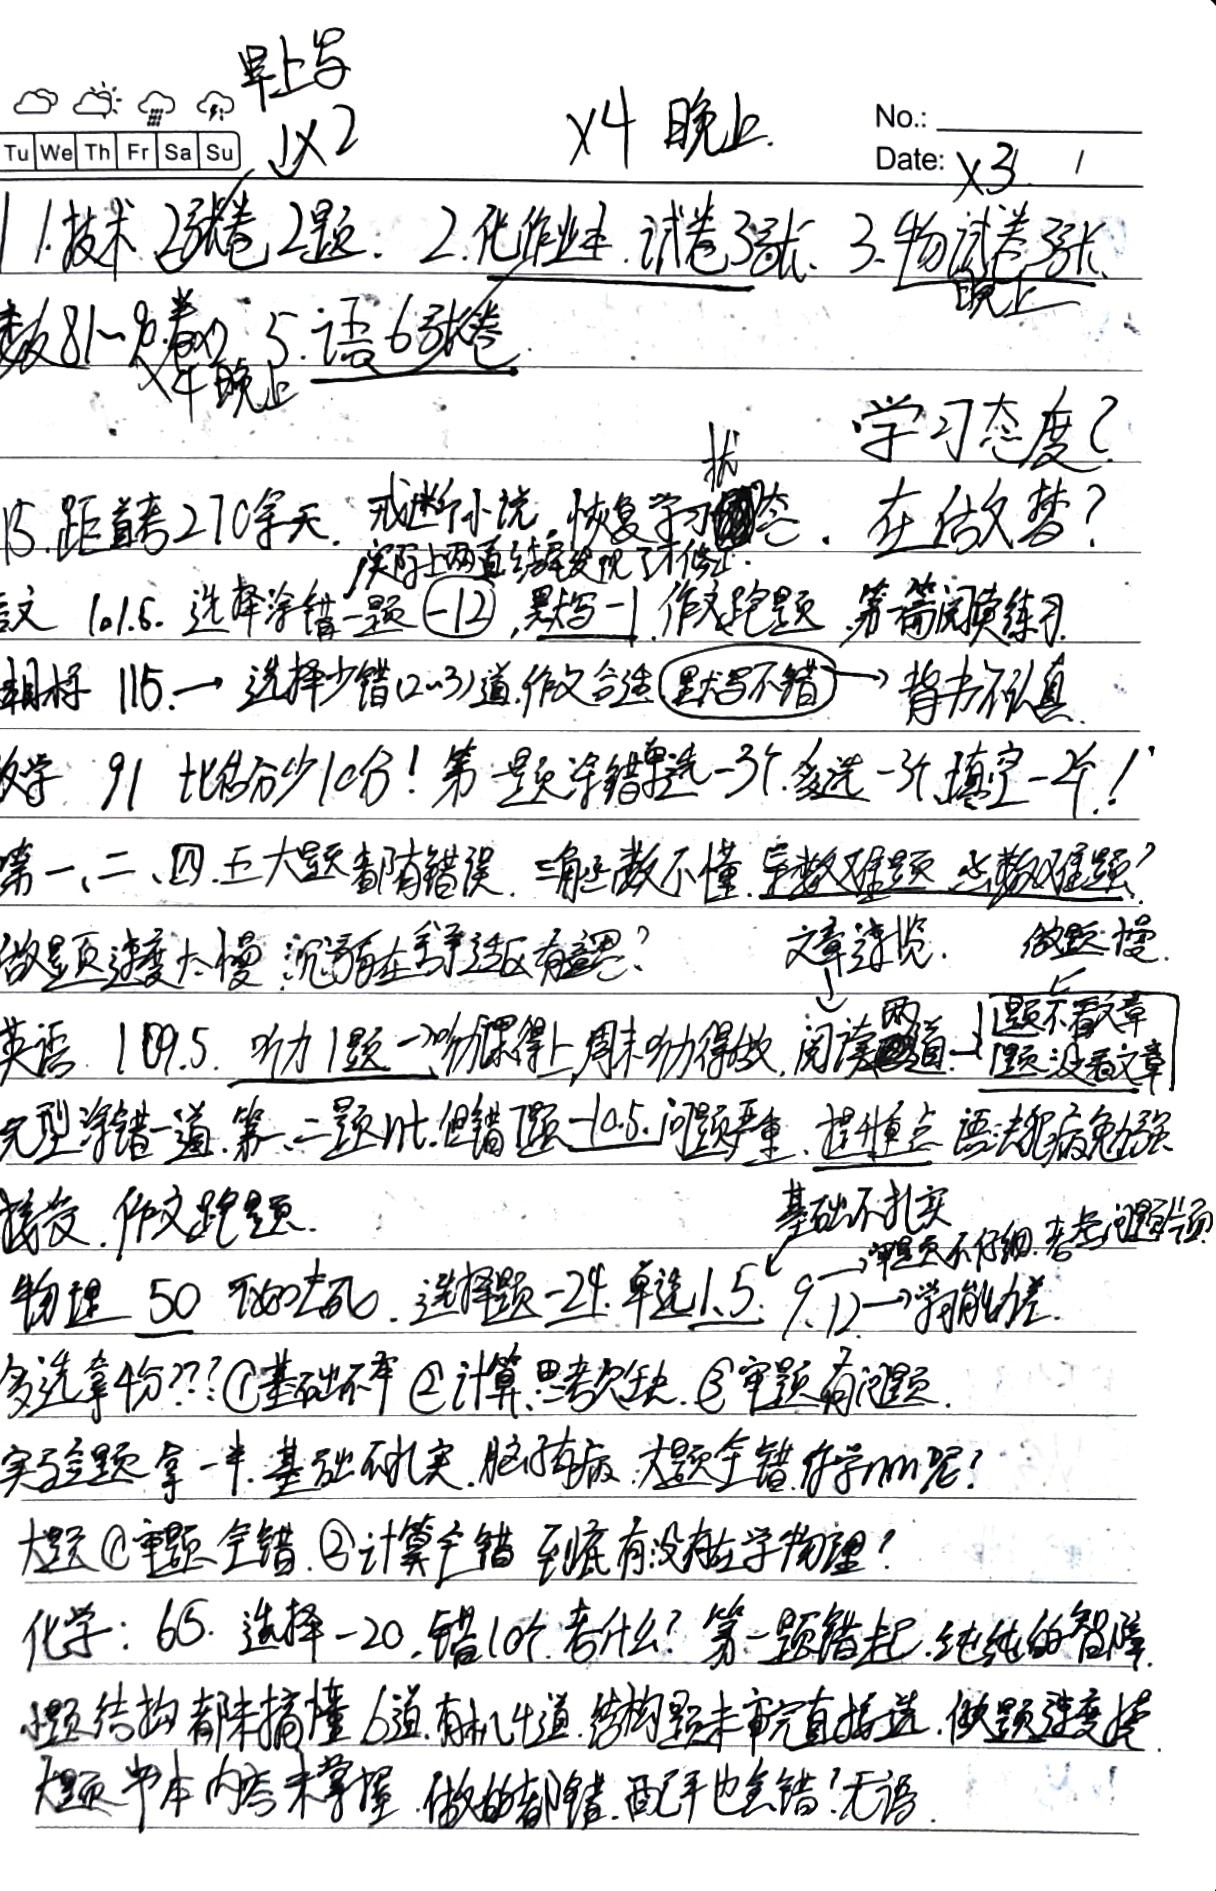 早上写
x2
x4 晚上.
No.:
Tu We Th Fr Sa Su
Date: x3 /
1.技术 2张卷2题. 2.化作业本.试卷3张. 3.物试卷3张.
晚上
数81~ 卷 5.语6张卷.
x4晚上
学习态度?
状
15.距首考270余天. 戒断小说.恢复学习 态. 在做梦?
实际上两道结束发现了未修正.
语文 101.5. 选择涂错一题 -12, 默写-1. 作文跑题 第一篇阅读练习
目标 115. → 选择少错(2~3)道.作文合适 默写不错 → 背书不认真.
数学 91 比估分少10分! 第一题涂错单选-3个.多选-3个.填空-2个!
第一、二、四.五大题都有错误. 三角函数不懂.导数难题 函数难题?
做题速度太慢 沉 在 有意思?
文章速览. 做题慢.
英语 109.5. 听力1题→听力课得上,周末听力得做. 阅读两道→
1题不看文章
1题没看文章
完型涂错一道.第一、二题 .但错7题-10.5.问题严重.提升重点 语法犯病勉强
接受.作文跑题.
基础不扎实
→审题不仔细.思考问题片面
物理 50 . 选择题-24. 单选1、5. 9、12→学习能力差.
多选拿4分???①基础不牢 ②计算、思考欠缺.③审题有问题.
实验题拿一半.基础不扎实.脑子有病.大题全错.你学nm呢?
大题①审题全错.②计算全错 到底有没有在学物理?
化学: 65. 选择-20,错10个.考什么? 第一题错起.纯纯的智障.
小题结构都未搞懂 6道.有机4道.结构题未审完直接选.做题速度慢.
大题 书本内容未掌握.做的都错.配平也会错?无语.